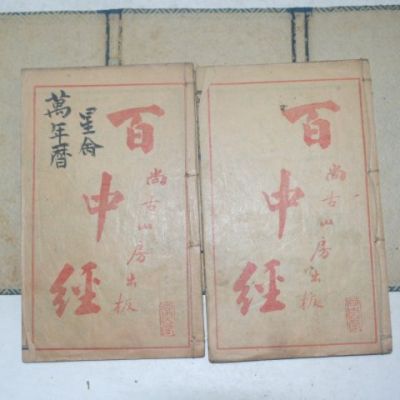 百中經
尚古山房出板
星命
萬年曆
百中經
尚古山房出板